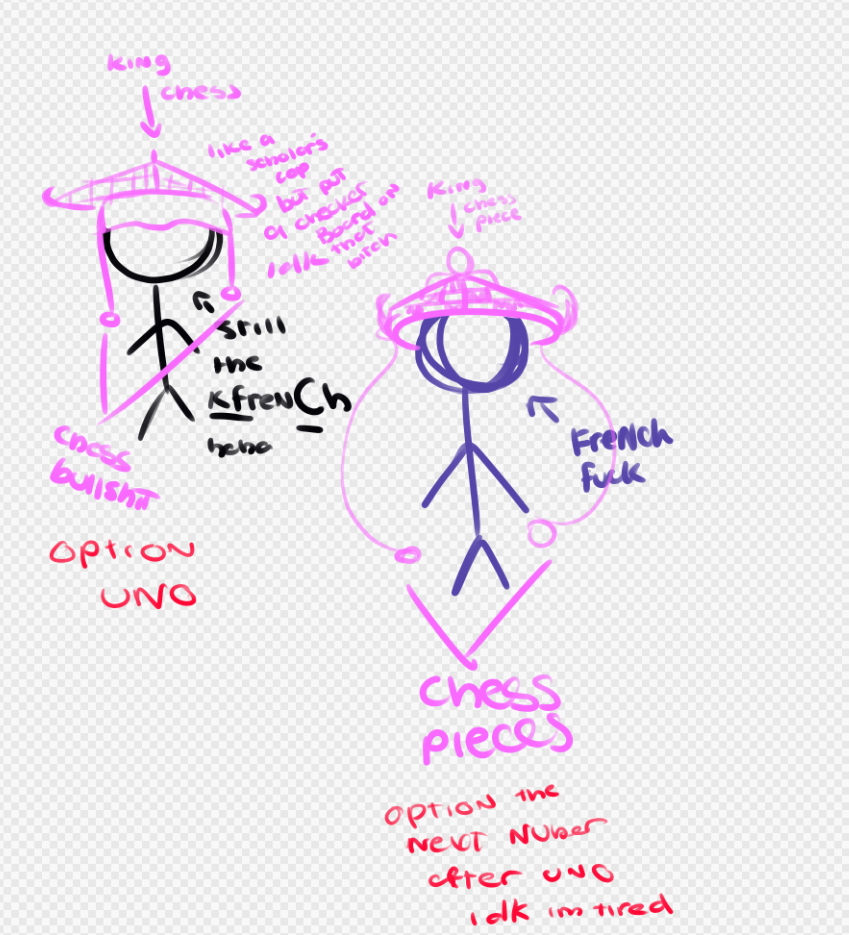 King
chess
like a
scholar's
cap
but put
a checker
Board on
that
bitch
idk
still
the
KfrenCh
hehe
chess
bullshit
OPTION
UNO
King
chess
piece
FrenCh
fuck
Chess
pieces
OPTION the
NEXT NUber
after UNO
idk im tired